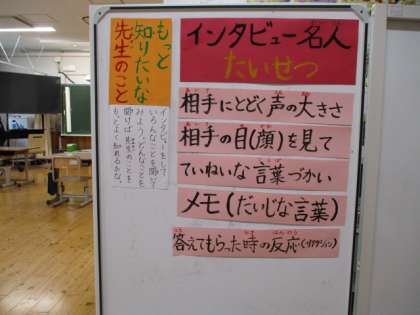 もっと
知りたいな
先生のこと
インタビューをして
いろんなことを聞いて
みよう。どんなことを
聞けば、先生のことを
もっとよく知れるかな。
インタビュー名人
たいせつ
相手にとどく声の大きさ
相手の目(顔)を見て
ていねいな言葉づかい
メモ(だいじな言葉)
答えてもらった時の反応(リアクション)